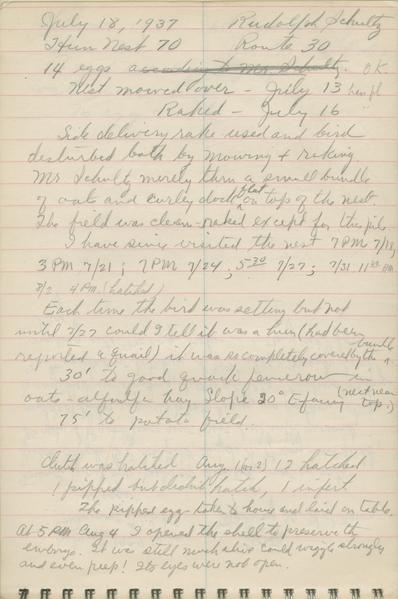 July 18, 1937 Rudolph Schultz
Hun Nest 70 Route 30
14 eggs according to Mr. Schultz. O.K.
Nest mowed over - July 13
Raked - July 16
Side delivery rake used and bird
disturbed both by mowing + raking.
Mr Schultz merely threw a small bundle
of oats and curley dock that on top of the nest.
The field was clean-raked except for this pile
I have since visited the nest 7 PM 7/18,
3 PM 7/21; 7 PM 7/24, 5 30 7/27; 7/31 11 AM
8/2 4 PM (hatched)
Each time the bird was setting but not
until 7/27 could I tell it was a hun (had been
reported a quail) it was so completely covered by the bundle
30' to good quack fencerow in
oats - alfalfa hay Slope 20° E facing (nest near top.)
75' to potato field.
Clutch was hatched Aug. 1 (or 2) 12 hatched
1 pipped but didn't hatch, 1 infert
The pipped egg taken to house and laid on table.
At 5 PM Aug 4 I opened the shell to preserve the
embryo. It was still much alive could wiggle strongly
and even peep! Its eyes were not open.